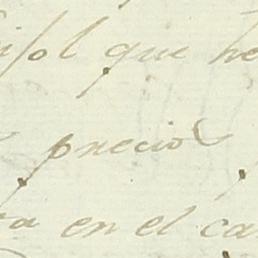 que he
precio
en el ca